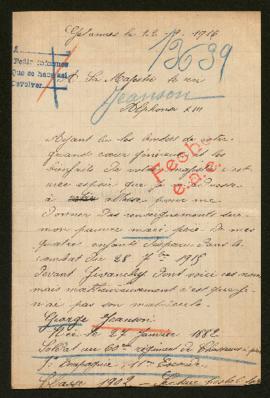 Gélannes le 12 1916
13639
A
Pedir informes
Que se haga asi
Devolver
A Sa Majesté le roi
Jeanson
Alphonse XIII
Ayant lu les bontés de votre
grand cœur généreux et les
bienfaits de votre majesté et
une espoir que je
à votre altesse pour me
donner des renseignements sur
mon pauvre mari père de mes
quatre enfants disparu dans le
combat du 28 7bre 1915
devant Givenchy dont voici ses noms
mais malheureusement c'est que je
n'ai pas son matricule.
Fecho
George Jeanson
Né le 27 Janvier 1882
Soldat au 60me régiment de Chasseurs à pied
Compagnie Escouade
Classe 1902